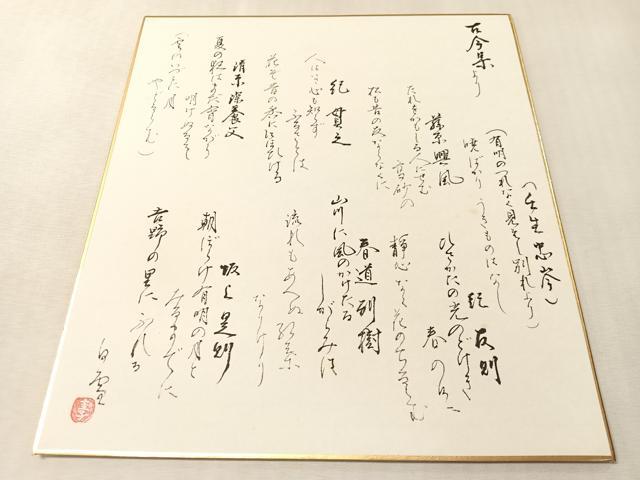 古今集より
(壬生忠岑)
(有明のつれなく見えし別れより)
暁ばかりうきものはなし
紀友則
ひさかたの光のどけき
春の日に
静心なく花のちるらむ
藤原興風
たれをかもしる人にせむ
高砂の
松も昔の友ならなくに
紀貫之
人はいさ心も知らず
ふるさとは
花ぞ昔の香に匂ひける
春道列樹
山川に風のかけたる
しがらみは
流れもあへぬ紅葉
なりけり
清原深養父
夏の夜はまだ宵ながら
明けぬるを
(雲のいづこに月
やどるらむ)
坂上是則
朝ぼらけ有明の月と
みるまでに
吉野の里にふれる
白雪